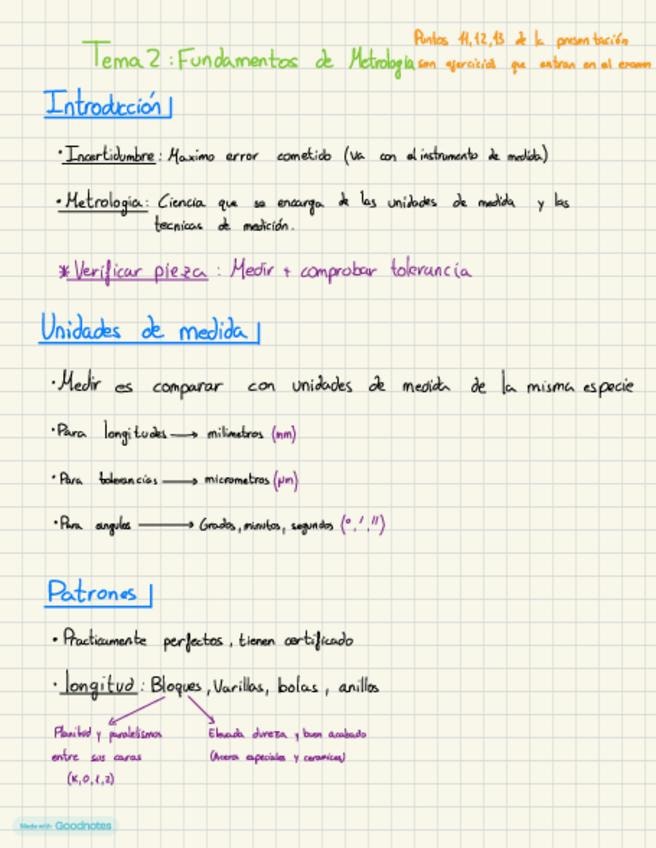 Puntos 11,12,13 de la presentación
Tema 2: Fundamentos de Metrología son ejercicios que entran en el examen
Introducción
· Incertidumbre: Maximo error cometido (va con el instrumento de medida)
· Metrologia: Ciencia que se encarga de las unidades de medida y las
tecnicas de medición.
* Verificar pieza: Medir + comprobar tolerancia
Unidades de medida
· Medir es comparar con unidades de medida de la misma especie
· Para longitudes → milimetros (mm)
· Para tolerancias → micrometros (μm)
· Para angulos → Grados, minutos, segundos (°,',")
Patrones
· Practicamente perfectos, tienen certificado
· longitud: Bloques, Varillas, bolas, anillos
Planitud y paralelismo
entre sus caras
(K,0,1,2)
Elevada dureza y buen acabado
(Aceros especiales y ceramicas)
Made with Goodnotes